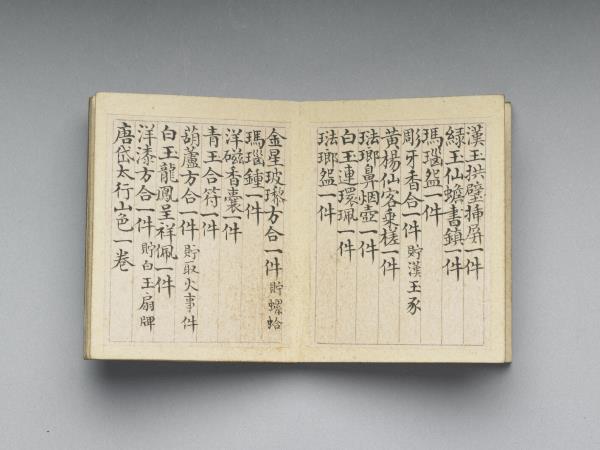 漢玉拱璧插屏一件
綠玉仙蟾書鎮一件
瑪瑙盌一件
彫牙香合一件 貯漢玉豕
黃楊仙客乘槎一件
琺瑯鼻烟壺一件
白玉連環珮一件
琺瑯盌一件
金星玻瓈方合一件 貯螺蛤
瑪瑙鍾一件
洋磁香囊一件
青玉合符一件
葫蘆方合一件 貯取火事件
白玉龍鳳呈祥佩一件
洋漆方合一件 貯白玉扇牌
唐岱太行山色一卷